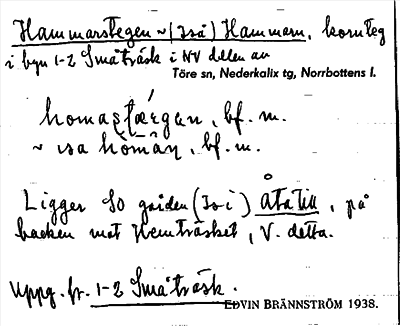 Hammarstegen ~ (Iså) Hammarn, kornteg
i byn 1-2 Småträsk i NV delen av
Töre sn, Nederkalix tg, Norrbottens l.
bf. m.
~ bf. m.
Ligger SO gården (Is i) Åtatill, på
backen mot Hemträsket, V. detta.
Uppg. fr. 1-2 Småträsk.
EDVIN BRÄNNSTRÖM 1938.